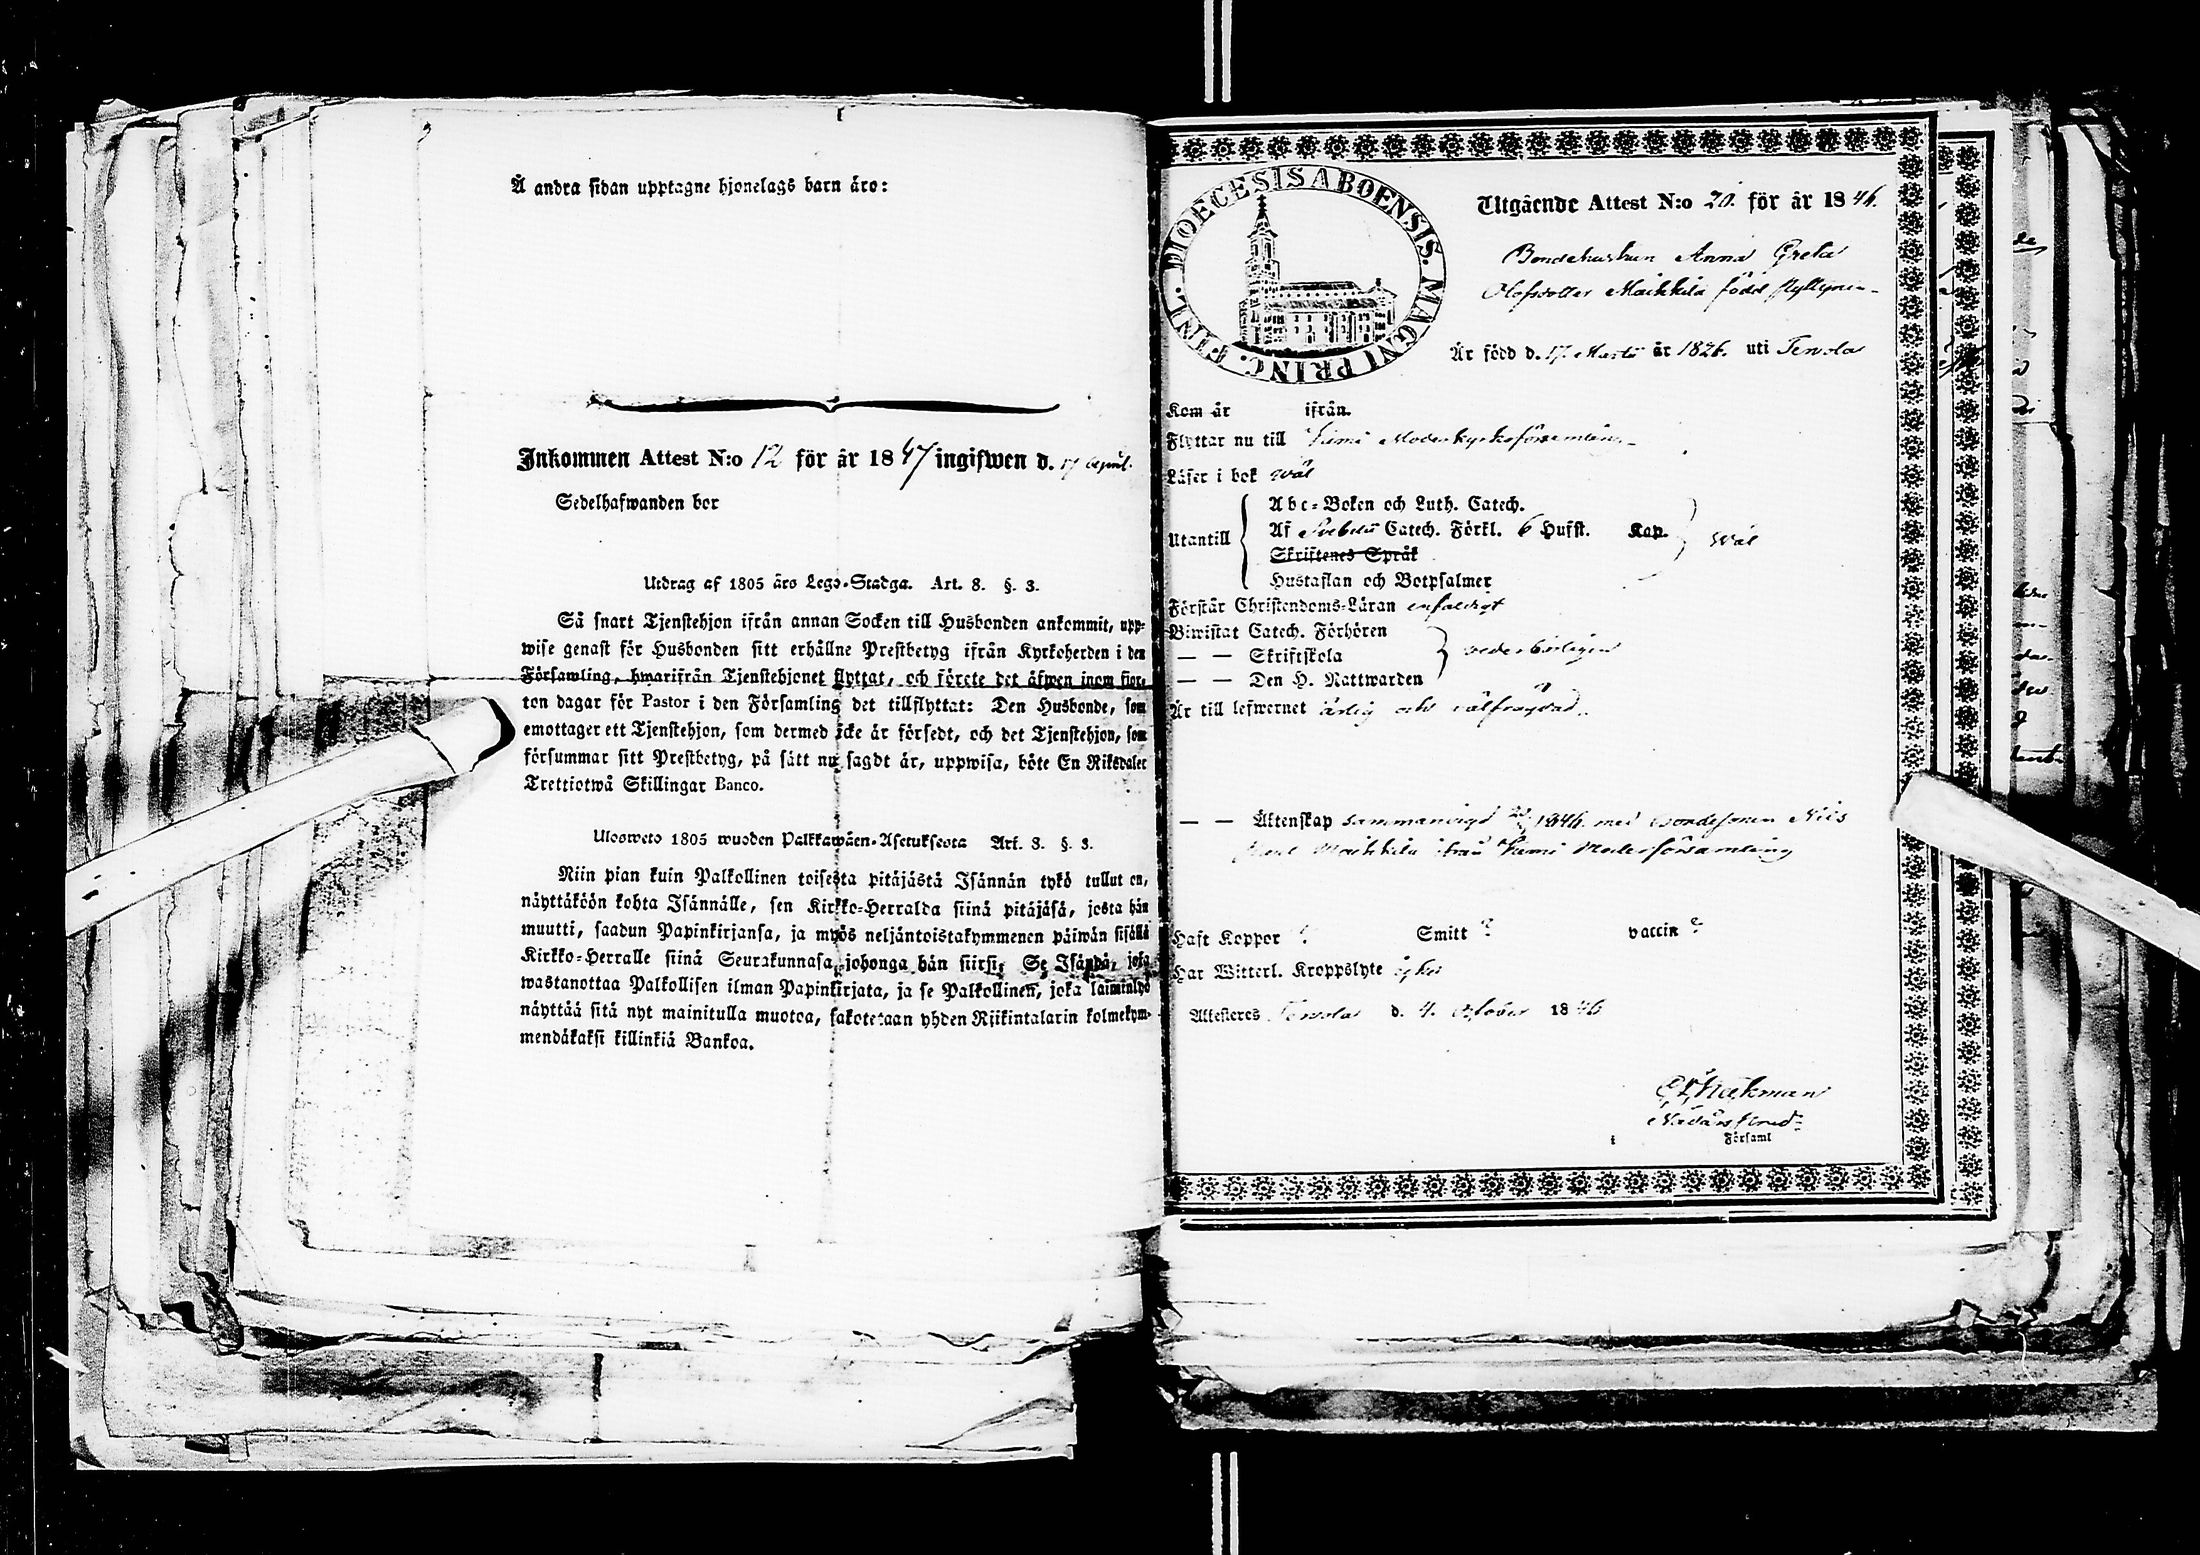 Å andra sidan upptagne hjonelags barn äro:
Inkommen Attest N:o 12 för år 1847 ingifwen d. 17 April.
Sedelhafwanden bor
Utdrag af 1805 års Lego-Stadga. Art. 8. §. 3.
Så snart Tjenstehjon ifrån annan Socken till Husbonden ankommit, upp-
wise genast för Husbonden sitt erhållne Prestbetyg ifrån Kyrkoherden i den
Församling, hwarifrån Tjenstehjonet flyttat, och förete det äfwen inom fjor-
ton dagar för Pastor i den Församling det tillflyttat: Den Husbonde, som
emottager ett Tjenstehjon, som dermed icke är försedt, och det Tjenstehjon, som
försummar sitt Prestbetyg, på sätt nu sagdt är, uppwisa, böte En Riksdaler
Trettiotwå Skillingar Banco.
Ulosweto 1805 wuoden Palkkawäen-Asetuksesta Art. 8. §. 3.
Niin pian kuin Palkollinen toisesta pitäjästä Isännän tykö tullut on,
näyttäköön kohta Isännälle, sen Kirkko-Herralda siinä pitäjäsä, josta hän
muutti, saadun Papinkirjansa, ja myös neljäntoistakymmenen päiwän sisällä
Kirkko-Herralle siinä Seurakunnasa johonga hän siirsi; Se Isändä, joka
wastanottaa Palkollisen ilman Papinkirjata, ja se Palkollinen, joka laiminlyö
näyttää sitä nyt mainitulla muotoa, sakotetaan yhden Riikintalarin kolmekym-
mendäkaksi killinkiä Bankoa.
DIOECESIS ABOENSIS. MAGNI PRINC. FINL.
Utgående Attest N:o 20. för år 1846.
Bondehustrun Anna Greta
Olofsdotter Maikkila född
Är född d. 17. Martii år 1826. uti Tervola
Kom år ifrån.
Flyttar nu till Kimi Moderkyrkoförsamling
Läser i bok wäl
Utantill
Abc-Boken och Luth. Catech.
Af Svebelii Catech. Förkl. 6 Hufst. Kap.
Skriftenes Språk
Hustaflan och Botpsalmer
wäl
Förstår Christendoms-Läran enfaldigt
Biwistat Catech. Förhören
— — Skriftskola
— — Den H. Nattwarden
vederbörligen
Är till lefwernet ärlig och välfrägdad.
— — Äktenskap sammanvigd 1846. med Bondesonen Nils
Maikkila ifrån Kimi Moderförsamling
Haft Koppor ? Smitt ? vaccin ?
Har Witterl. Kroppslyte icke
Attesteras Tervola d. 4. October 1846
Församl